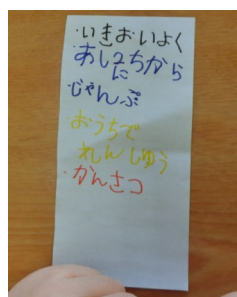 ・いきおいよく
あし2ちから
に
・じゃんぷ
・おうちで
れんしゅう
・かんさつ